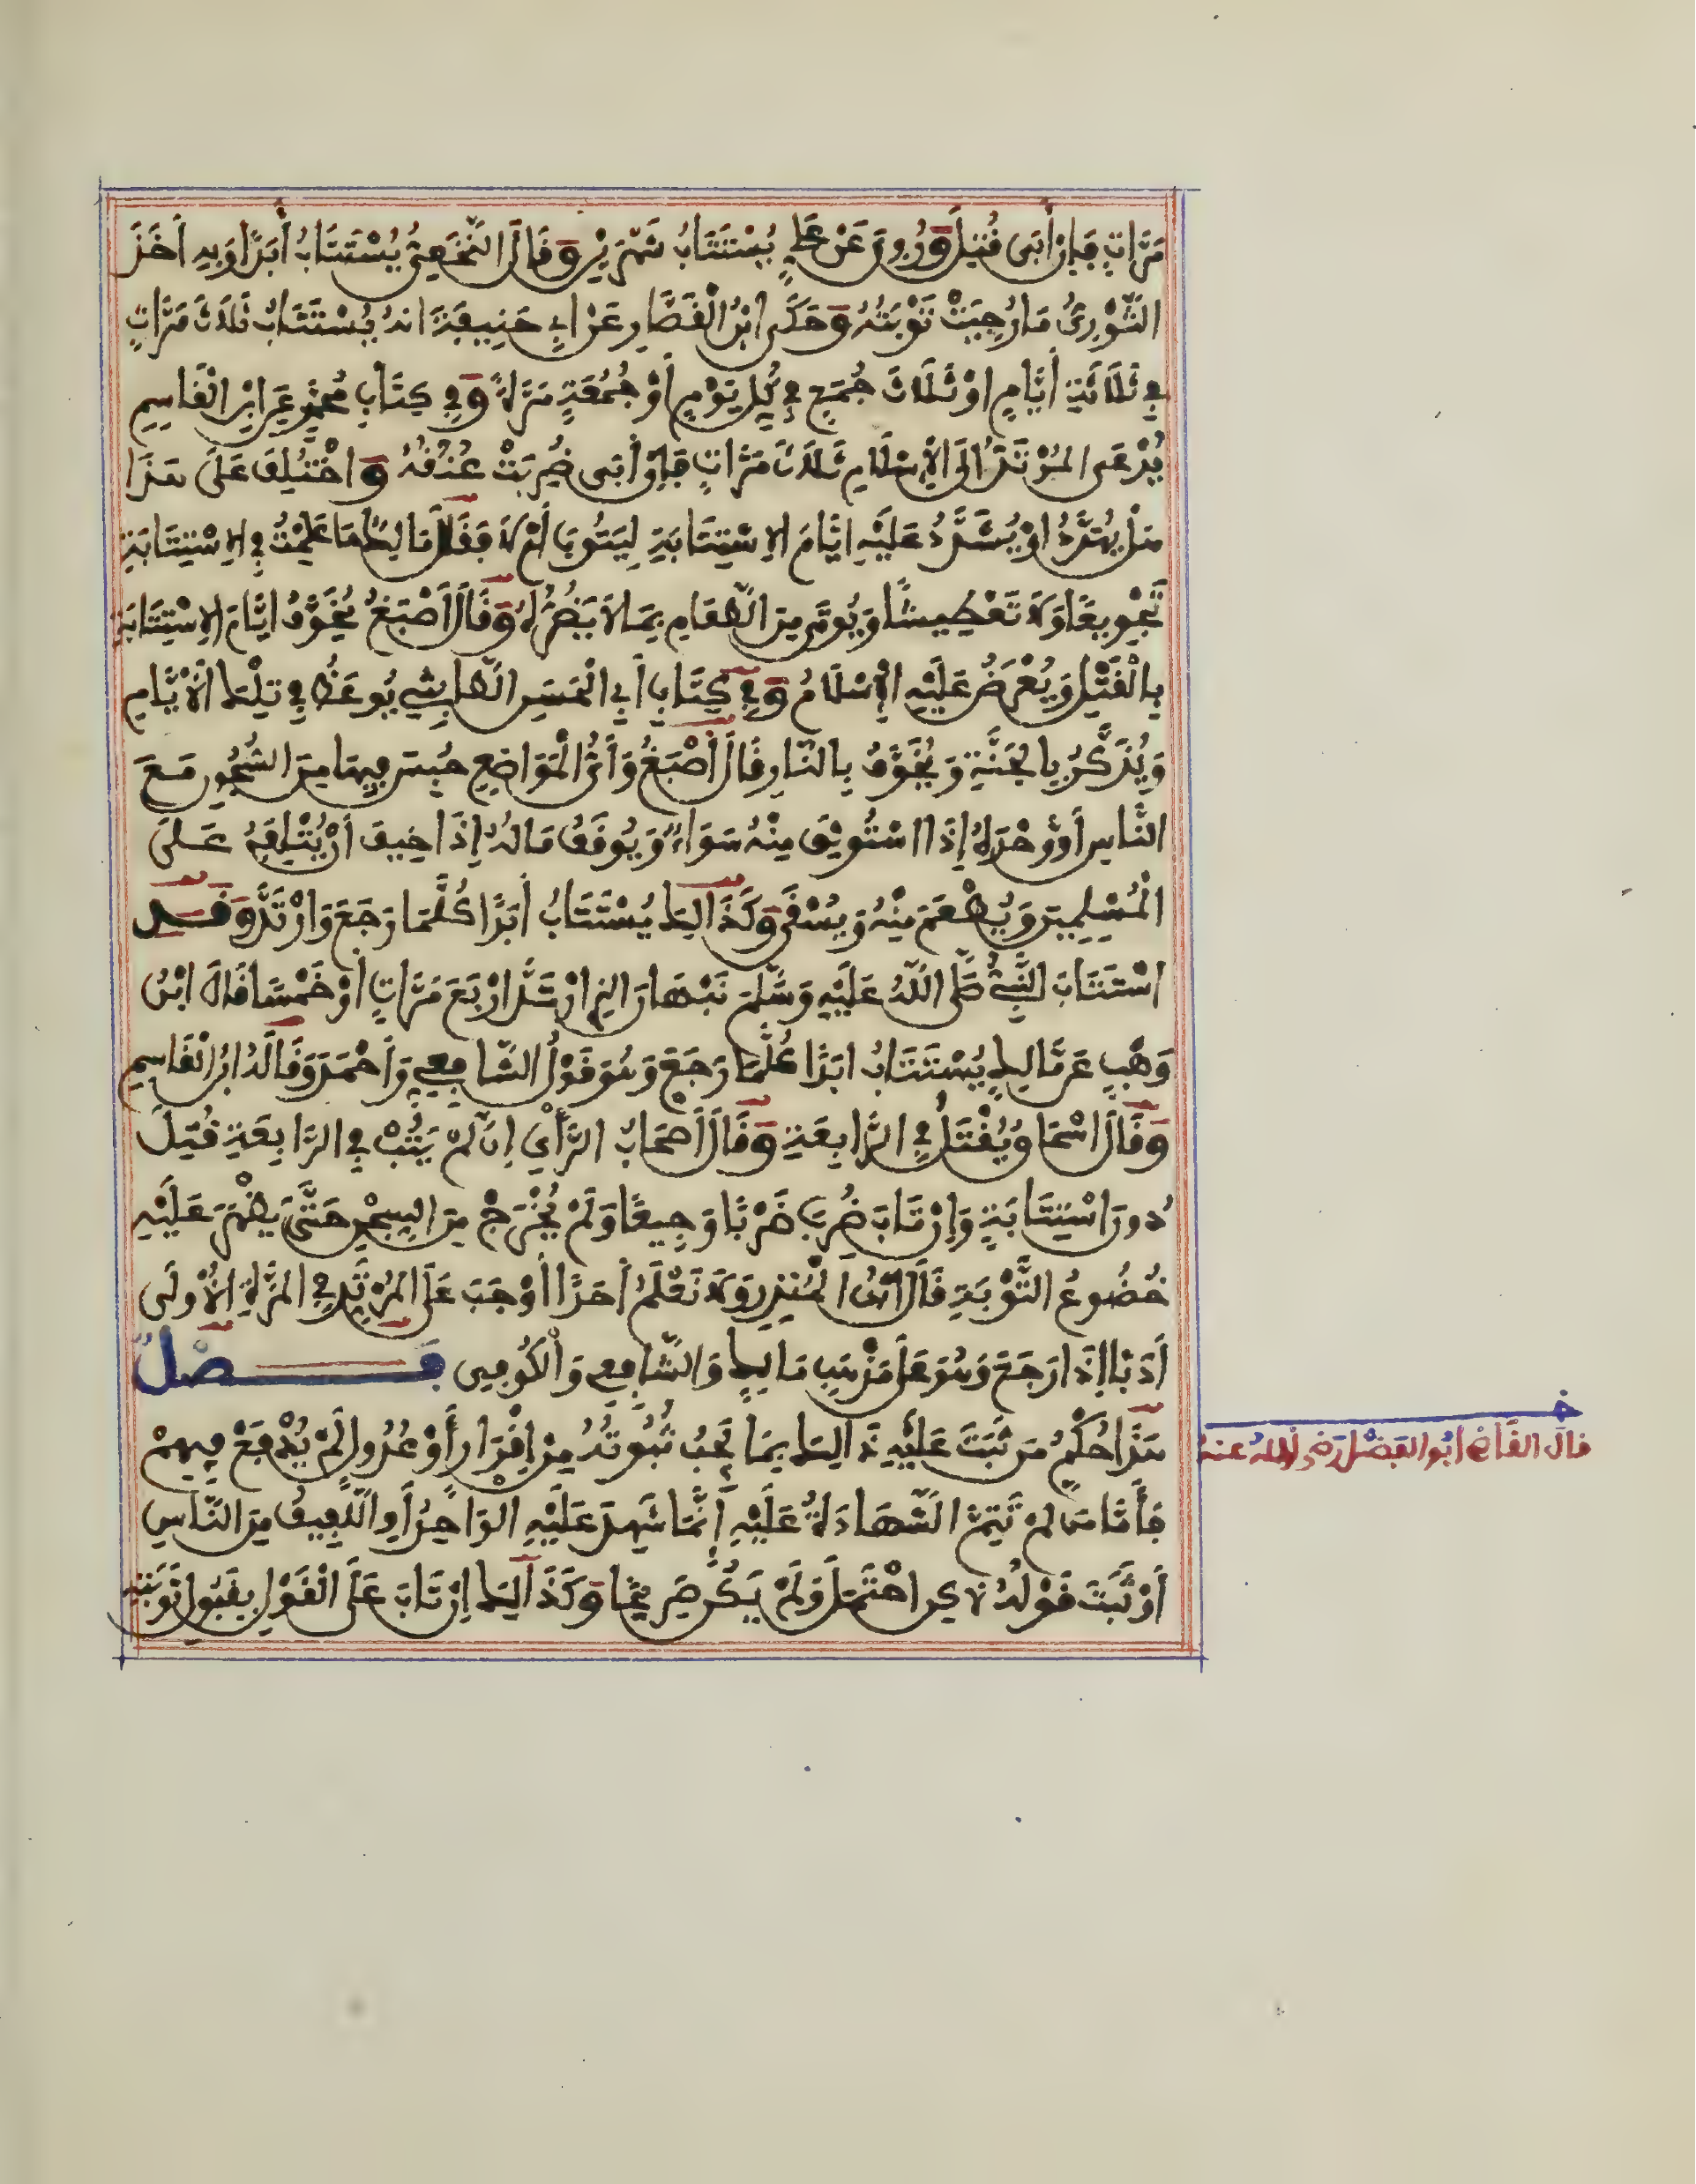 مَرَّاتٍ فَإِنْ أَبَى قُتِلَ وَرُوِيَ عَنْ عَلِيٍّ يُسْتَتَابُ شَهْرَيْنِ وَقَالَ النَّخَعِيُّ يُسْتَتَابُ أَبَدًا وَبِهِ أَخَذَ
الثَّوْرِيُّ مَا رُجِيَتْ تَوْبَتُهُ وَحَكَى ابْنُ الْقَصَّارِ عَنْ أَبِي حَنِيفَةَ انهُ يُسْتَتَابُ ثَلَاثَ مَرَّاتٍ
فِي ثَلَاثَةِ أَيَّامٍ اوْ ثَلَاثَ جُمَعٍ فِي كُلِّ يَوْمٍ أَوْ جُمُعَةٍ مَرَّةً وَفِي كِتَابِ مُحَمَّدٍ عَنِ ابْنِ الْقَاسِمِ
يُدْعَى الْمُرْتَدُّ إِلَى الْإِسْلَامِ ثَلَاثَ مَرَّاتٍ فَإِنْ أَبَى ضُرِبَتْ عُنُقُهُ وَاخْتُلِفَ عَلَى هَذَا
هَلْ يُهَدَّدُ اوْ يُشَدَّدُ عَلَيْهِ ايَّامَ الِاسْتِتَابَةِ لِيَتُوبَ أَمْ لَا فَقَالَ مَالِكٌ مَا عَلِمْتُ فِي الِاسْتِتَابَةِ
تَجْوِيعًا وَلَا تَعْطِيشًا وَيُوتَى مِنَ الطَّعَامِ بِمَا لَا يَضُرُّهُ وَقَالَ أَصْبَغُ يُخَوَّفُ ايَّامَ الِاسْتِتَابَةِ
بِالْقَتْلِ وَيُعْرَضُ عَلَيْهِ الْإِسْلَامُ وَفِي كِتَابِ أَبِي الْحَسَنِ الطَّابِثِي يُوعَظُ فِي تِلْكَ الْأَيَّامِ
وَيُذَكَّرُ بِالْجَنَّةِ وَيُخَوَّفُ بِالنَّارِ قَالَ أَصْبَغُ وَأَيُّ الْمَوَاضِعِ حُبِسَ فِيهَا مِنَ السُّجُونِ مَعَ
النَّاسِ أَوْ وَحْدَهُ إِذَا اسْتُوثِقَ مِنْهُ سَوَاءٌ وَيُوقَفُ مَالُهُ إِذَا خِيفَ أَنْ يُتْلِفَهُ عَلَى
الْمُسْلِمِينَ وَيُطْعَمَ مِنْهُ وَيُسْقَى وَكَذَالِكَ يُسْتَتَابُ أَبَدًا كُلَّمَا رَجَعَ وَارْتَدَّ وَقَدِ
اسْتَتَابَ النَّبِيُّ صَلَّى اللَّهُ عَلَيْهِ وَسَلَّمَ نَبْهَانَ الذِي ارْتَدَّ ارْبَعَ مَرَّاتٍ أَوْ خَمْسًا قَالَ ابْنُ
وَهْبٍ عَنْ مَالِكٍ يُسْتَتَابُ ابَدًا كُلَّمَا رَجَعَ وَهُوَ قَوْلُ الشَّافِعِيِّ وَأَحْمَدَ وَقَالَهُ ابْنُ الْقَاسِمِ
وَقَالَ اسْحَاقُ يُقْتَلُ فِي الرَّابِعَةِ وَقَالَ أَصْحَابُ الرَّأْيِ إِنْ لَمْ يَتُبْ فِي الرَّابِعَةِ قُتِلَ
دُونَ اسْتِتَابَةٍ وَإِنْ تَابَ ضُرِبَ ضَرْبًا وَجِيعًا وَلَمْ يُخْرَجْ مِنَ السِّجْنِ حَتَّى يَظْهَرَ عَلَيْهِ
خُضُوعُ التَّوْبَةِ قَالَ ابْنُ الْمُنْذِرِ وَلَا نَعْلَمُ أَحَدًا أَوْجَبَ عَلَى الْمُرْتَدِّ فِي الْمَرَّةِ الْأُولَى
أَدَبًا إِذَا رَجَعَ وَهُوَ عَلَى مَذْهَبِ مَالِكٍ وَالشَّافِعِي وَالْكُوفِي فَصْلٌ
قال القاضي ابُو الفَضْل رَضي الله عنهُ
هَذَا حُكْمُ مَنْ ثَبَتَ عَلَيْهِ ذَالِكَ بِمَا يَجِبُ ثُبُوتُهُ مِنْ إِقْرَارٍ أَوْ عُدُولٍ لَمْ يُدْفَعْ فِيهِمْ
فَأَمَّا مَنْ لَمْ تَتِمَّ الشَّهَادَةُ عَلَيْهِ إِنَّمَا شَهِدَ عَلَيْهِ الْوَاحِدُ أَوِ اللَّفِيفُ مِنَ النَّاسِ
أَوْ ثَبَتَ قَوْلُهُ لَاكِنِ احْتَمَلَ وَلَمْ يَكُنْ صَرِيحًا وَكَذَالِكَ إِنْ تَابَ عَلَى الْقَوْلِ بِقَبُولِ تَوْبَتِهِ